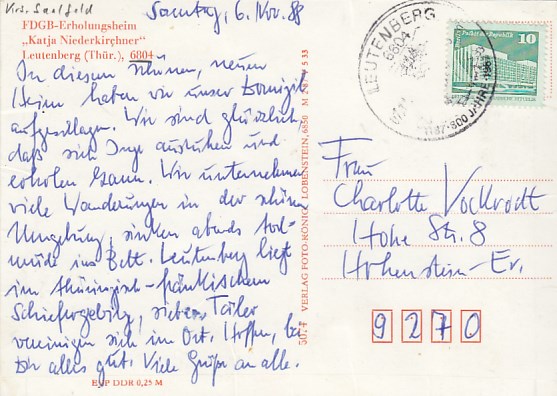 Krs. Saalfeld
Sonntag, 6. Nov. 88
FDGB-Erholungsheim
„Katja Niederkirchner"
Leutenberg (Thür.), 6804
In diesem schönen, neuen
Heim haben wir unser Domizil
aufgeschlagen. Wir sind glücklich
daß sich Inge ausruhen und
erholen kann. Wir unternehmen
viele Wanderungen in der schönen
Umgebung, sinken abends tod-
müde ins Bett. Leutenberg liegt
im thüringisch-fränkischen
Schiefergebirg, sieben Täler
vereinigen sich im Ort. Hoffen, bei
Dir alles gut. Viele Grüße an alle.
EVP DDR 0,25 M
VERLAG FOTO-KÖNIG, LOBENSTEIN, 6850
LEUTENBERG
6804
800 JAHRE
10
Frau
Charlotte Vockrodt
Hohe Str. 8
Hohenstein-Er.
9270